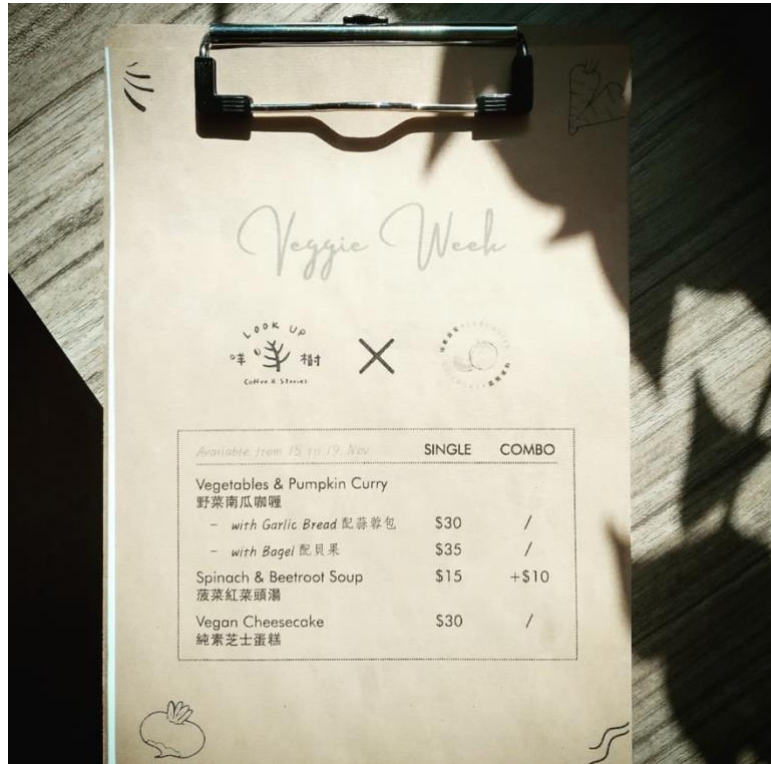 Veggie Week
LOOK UP
咩 樹
Coffee & Stories
X
Available from 15 to 19 Nov SINGLE COMBO
Vegetables & Pumpkin Curry
野菜南瓜咖喱
- with Garlic Bread 配蒜蓉包 $30 /
- with Bagel 配貝果 $35 /
Spinach & Beetroot Soup $15 +$10
菠菜紅菜頭湯
Vegan Cheesecake $30 /
純素芝士蛋糕